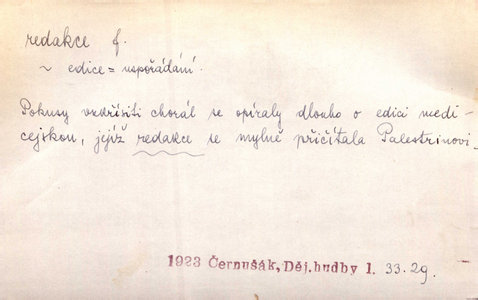 redakce f.
~ edice = uspořádání.
Pokusy vzkřísiti chorál se opíraly dlouho o edici medi-
cejskou, jejíž redakce se mylně přičítala Palestrinovi.
1923 Černušák, Děj. hudby 1. 33.29.